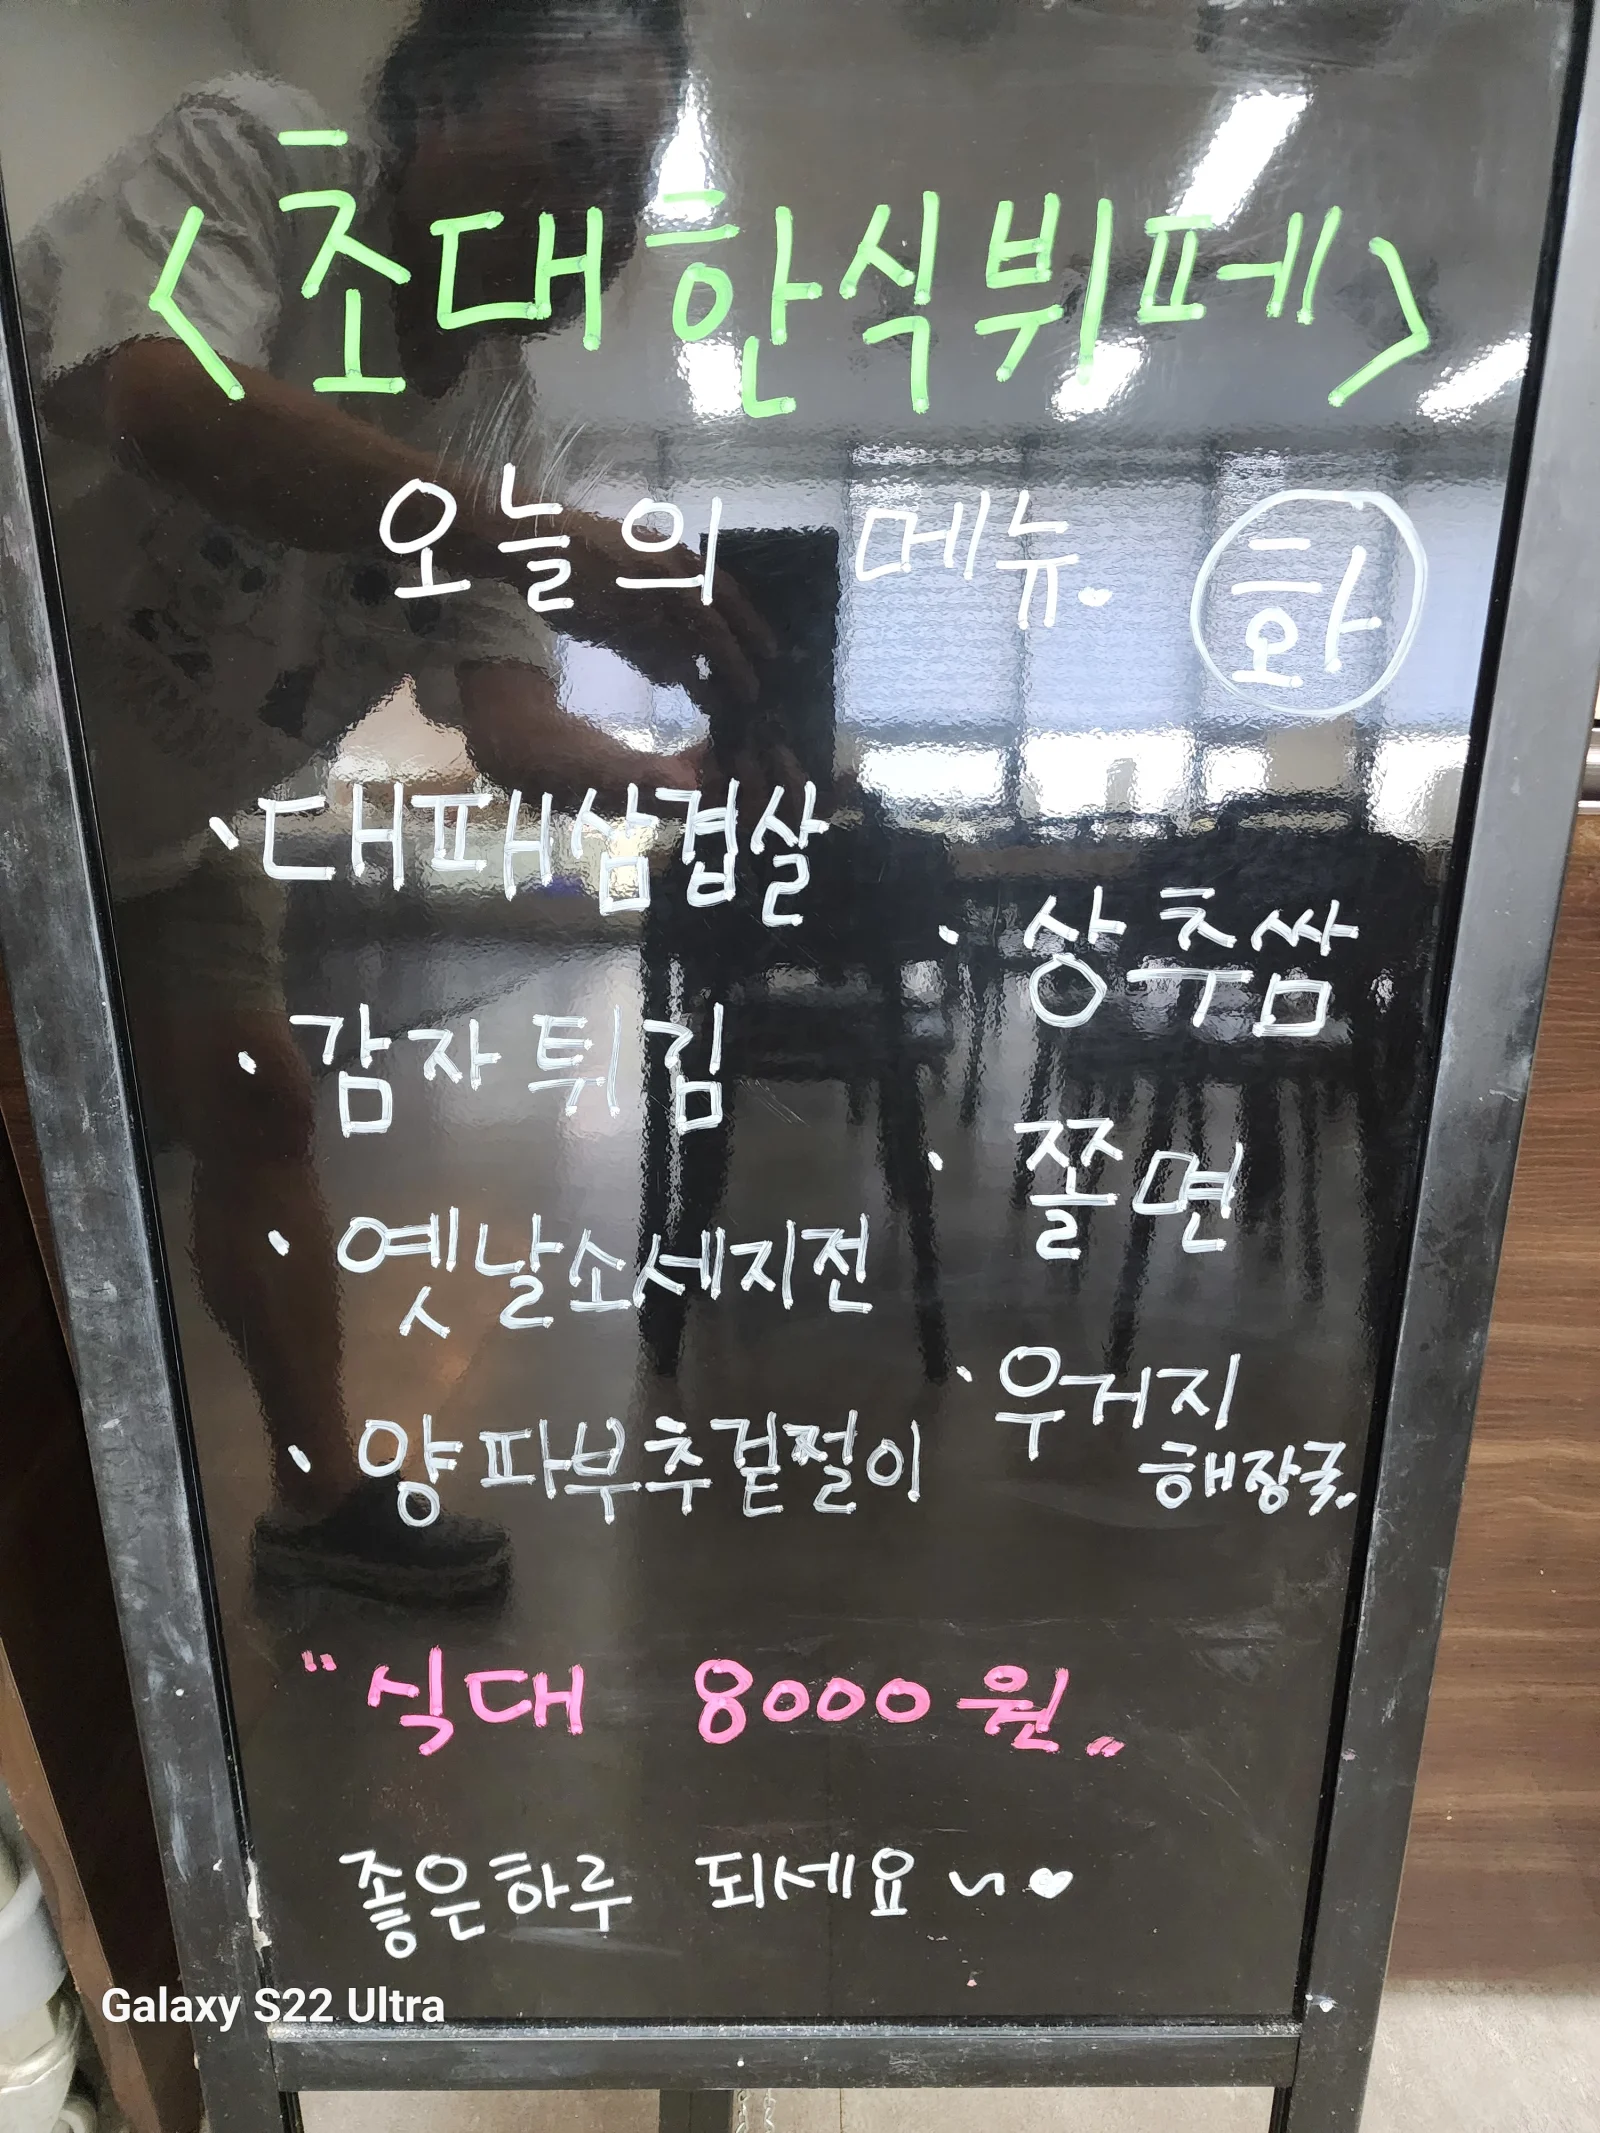 <초대한식뷔페>
오늘의 메뉴. 화
· 대패삼겹살
· 상추쌈
· 감자튀김
· 쫄면
· 옛날소세지전
· 우거지
해장국.
· 양파부추겉쩔이
"식대 8000원"
좋은하루 되세요~♥
Galaxy S22 Ultra